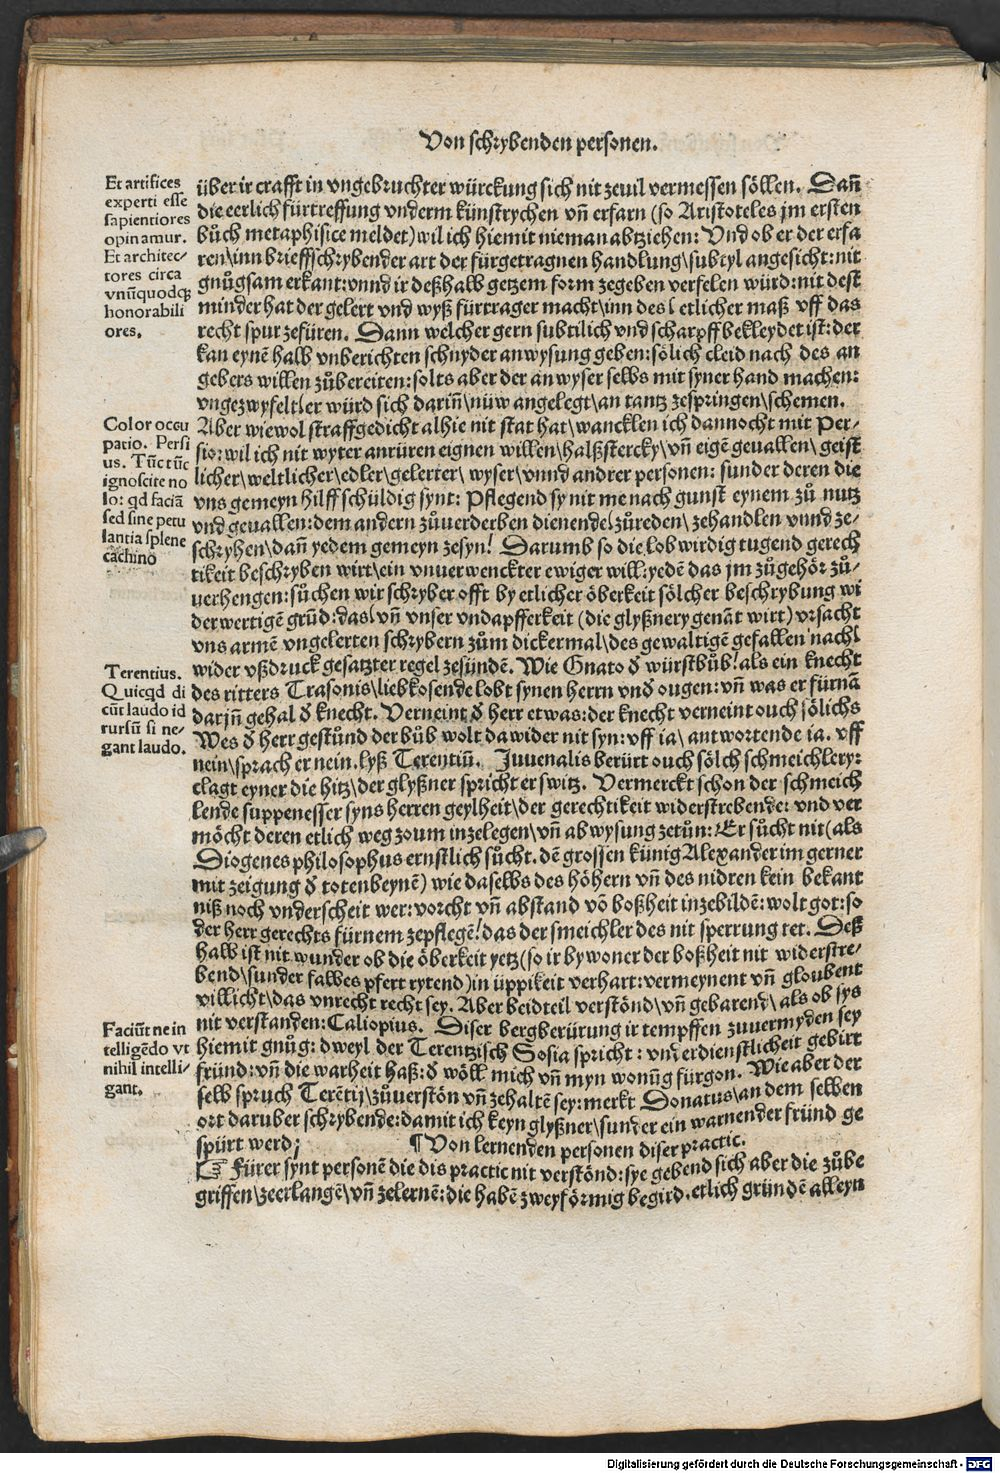 Von schrybenden personen.
Et artifices
experti esse
sapientiores
opinamur.
Et architec-
tores circa
vnũquodcꝫ
honorabili
ores.
über ir crafft in vngebruchter würckung sich nit zeuil vermessen söllen. Dañ
die eerlich fürtreffung vnderm künstrychen vñ erfarn (so Aristoteles jm ersten
bůch metaphisice meldet) wil ich hiemit nieman abtziehen: Vnd ob er der erfa
ren\ inn brieffschrybender art der fürgetragnen handlung\ subtyl angesicht: nit
gnůgsam erkant: vnnd ir deßhalb getzem form zegeben verfelen würd: nit dest
minder hat der gelert vnd wyß fürtrager macht\ inn des\ etlicher maß vff das
recht spur zefüren. Dann welcher gern subtilich vnd scharpff bekleydet ist: der
kan eynẽ halb vnberichten schnyder anwysung geben: sölich cleid nach des an
gebers willen zůbereiten: solts aber der anwyser selbs mit syner hand machen:
vngezwyfelt\ er würd sich dariñ\ nüw angelegt\ an tantz zespringen\ schemen.
Color occu
patio. Persi
us. Tũc tũc
ignoscite no
lo: qd faciã
sed sine petu
lantia splene
cachino
Aber wiewol straffgedicht alhie nit stat hat\ wancklen ich dannocht mit Per-
sio: wil ich nit wyter anrüren eignen willen\ halßstercky\ vñ eigẽ geuallen\ geist
licher\ weltlicher\ edler\ gelerter\ wyser\ vnnd andrer personen: sunder deren die
vns gemeyn hilff schüldig synt: Pflegend sy nit me nach gunst eynem zů nutz
vnd geuallen: dem andern zůuerderben dienende\ zůreden\ zehandlen vnnd ze-
schryhen\ dañ yedem gemeyn zesyn! Darumb so die lobwirdig tugend gerech
tikeit beschryben wirt\ ein vnuerwenckter ewiger will: yedẽ das jm zůgehör zů-
uerhengen: sůchen wir schryber offt by etlicher öberkeit sölcher beschrybung wi
derwertigẽ grũd: das\ vñ vnser vndapfferkeit (die glyßnery genãt wirt) vrsacht
vns armẽ vngelerten schrybern zům dickermal\ des gewaltigẽ gefallen nach\
Terentius.
Quicqd di
cũt laudo id
rursũ si ne-
gant laudo.
wider vßdruck gesatzter regel zesündẽ. Wie Gnato đ würstbůb! als ein knecht
des ritters Trasonis\ liebkosende lobt synen herrn vnđ ougen: vñ was er fürnã
darjñ gehal đ knecht. Verneint đ herr etwas: der knecht verneint ouch sölichs
Wes đ herr gestůnd der bůb wolt dawider nit syn: vff ia\ antwortende ia. vff
nein\ sprach er nein. lyß Terentiũ. Juuenalis berürt ouch sölch schmeichlery:
clagt eyner die hitz\ der glyßner spricht er switz. Vermerckt schon der schmeich
lende suppenesser syns herren geylheit\ der gerechtikeit widerstrebende: vnd ver
möcht deren etlich weg zoum inzelegen\ vñ abwysung zetůn: Er sůcht nit (als
Diogenes philosophus ernstlich sůcht. dẽ grossen künig Alexander im gerner
mit zeigung đ totenbeynẽ) wie daselbs des höhern vñ des nidren kein bekant
niß noch vnderscheit wer: vorcht vñ abstand võ boßheit inzebildẽ: wolt got: so
der herr gerechts fürnem zepflegẽ! das der smeichler des nit sperrung tet. Deß
halb ist nit wunder ob die öberkeit yetz (so ir bywoner der boßheit nit widerstre-
bend\ sunder falbes pfert rytend) in üppikeit verhart: vermeynent vñ gloubent
villicht\ das vnrecht recht sey. Aber beidteil verstönd\ vñ gebarend\ als ob sys
Faciũt ne in
telligẽdo vt
nihil intelli-
gant.
nit verstanden: Caliopius. Diser bergberürung ir tempffen zuuermyden sey
hiemit gnůg: dweyl der Terentzisch Sosia spricht: vnderdienstlicheit gebirt
fründ: vñ die warheit haß: đ wöll mich vñ myn wonũg fürgon. Wie aber der
selb spruch Terẽtij\ zůuerstön vñ zehaltẽ sey: merkt Donatus\ an dem selben
ort daruber schrybende: damit ich keyn glyßner\ sunder ein warnender fründ ge
spürt werd;
¶ Von lernenden personen diser practic.
☞ Fürer synt personẽ die dis practic nit verstönd: sye gebend sich aber die zůbe
griffen\ zeerlangẽ\ vñ zelernẽ: die habẽ zweyförmig begird. etlich gründẽ alleyn
Digitalisierung gefördert durch die Deutsche Forschungsgemeinschaft - DFG